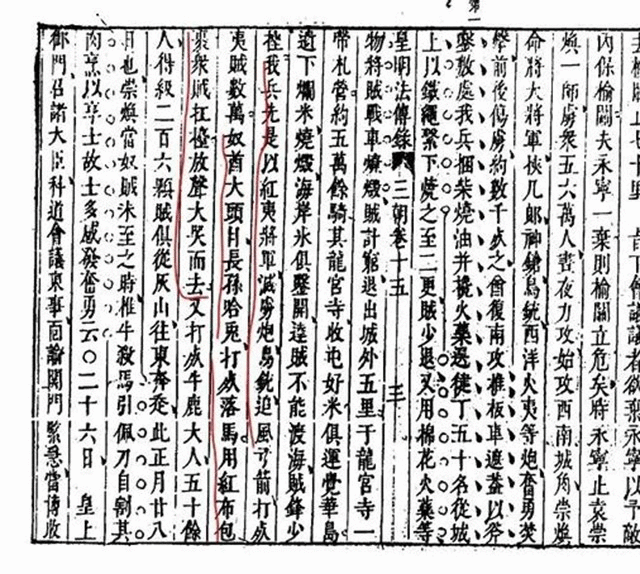 內保榆關夫永寧一棄則榆關立危矣時永寧止袁崇
煥一師虜衆五六萬人晝夜力攻始攻西南城角崇煥
命將大將軍 神鎗鳥銃西洋火夷等炮奮勇焚
擊前後傷虜約數千 之 復南攻推板車遮蓋以斧
鑿數處我兵捆柴燒油并攙火藥 徒丁五十名從城
上以鐵繩繫下燒之至二更賊少退又用棉花火藥等
皇明法傳錄 三朝卷十五 三
物將賊戰車 賊計窮退出城外五里于龍宮寺一
帶札營約五萬餘騎其龍宮寺收屯好米俱運覺華島
遺下爛米燒燬海岸氷俱鑿開達賊不能渡海賊鋒少
挫我兵先是以紅夷將軍滅虜炮鳥銃追風弓前打死
夷賊數萬奴酋大頭目長孫哈兎打死落馬用紅布包
裹衆賊扛擡放聲大哭而去又打死牛鹿大人五十餘
人得級二百六顆賊俱從灰山往東奔 此正月廿八
日也崇煥當奴賊未至之時椎牛殺馬引佩刀自割其
肉烹以享士故士多感發奮勇云〇二十六日 皇上
御門召諸大臣科道會議東事 諭關門緊急當傳收